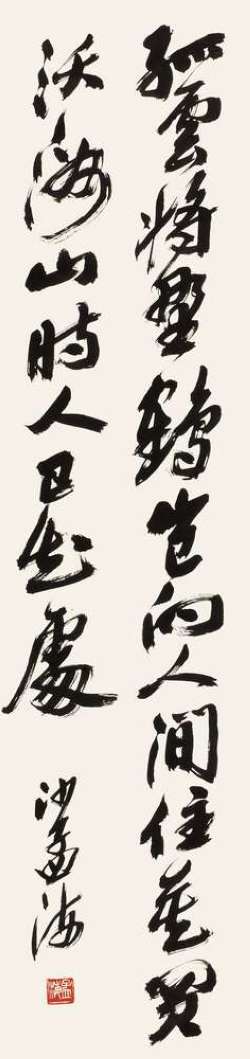 孤雲將野鶴豈向人間住莫買
沃洲山時人已知處
沙孟海